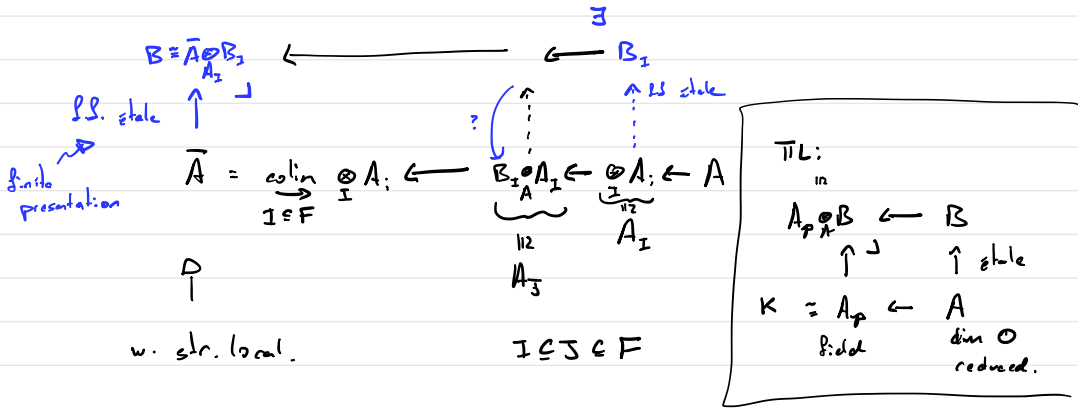 ∃
B ≅ Ā ⊗_{A_I} B_I ← ← B_I
étale
? étale
finite presentation
Ā = colim_{I ⊆ F} ⊗_I A_i ← B_I ⊗_A A_I ← ⊗_I A_i ← A
A_J
A_I
w. str. local.
I ⊆ J ⊆ F
A_p ⊗_A B ← B
étale
K ≅ A_p ← A
field
dim 0
reduced.